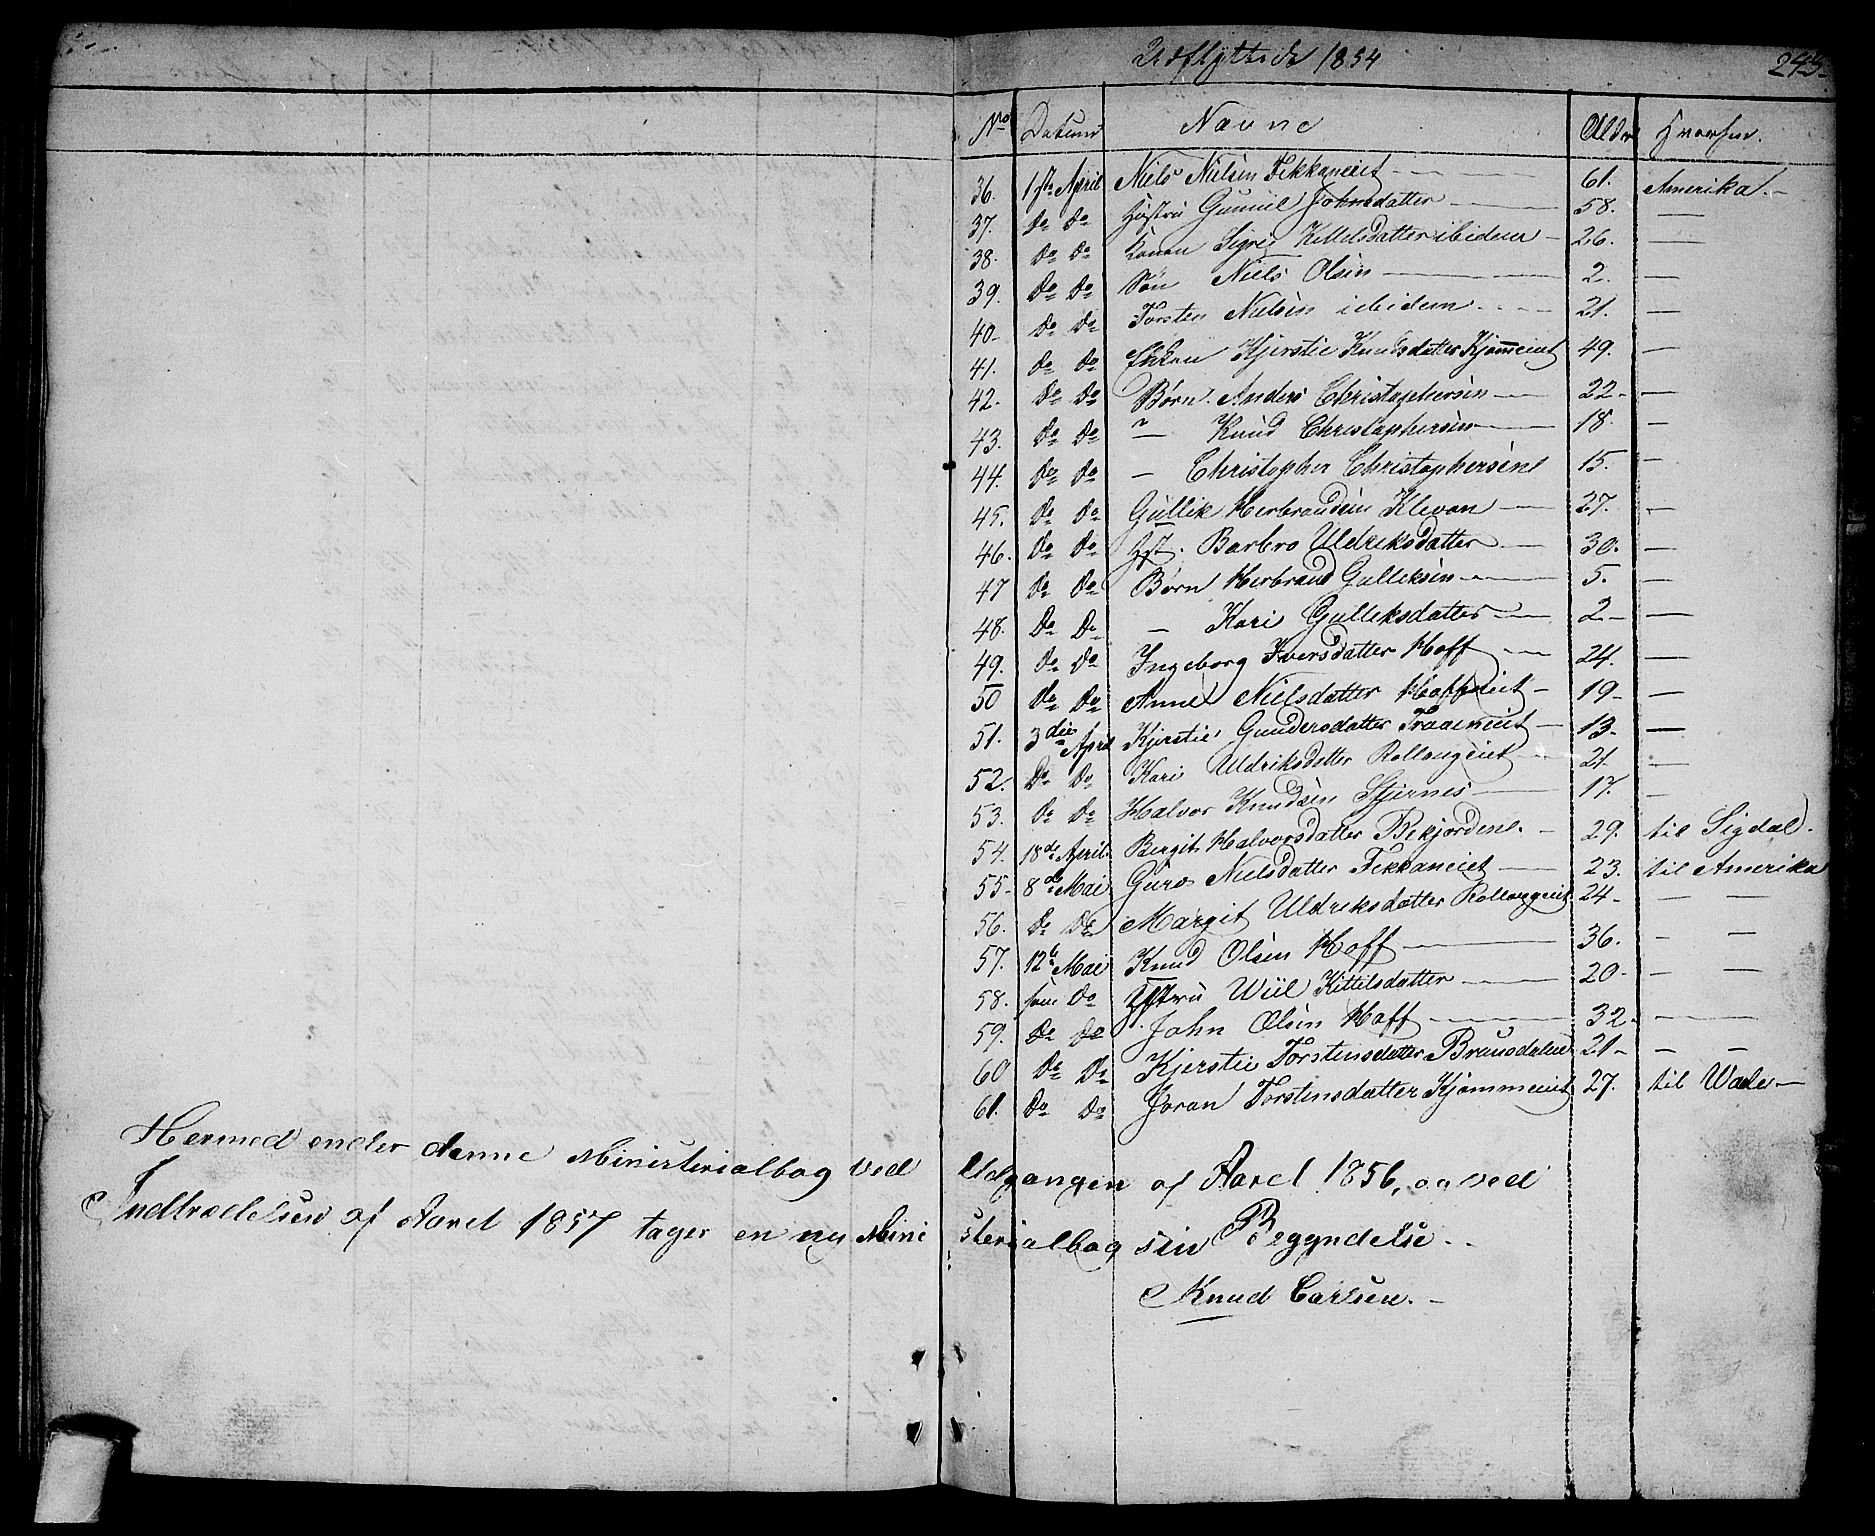 Udflyttede 1854
245.
No Datum Navne Alder Hvorhen.
36. 1ste April Niels Nielsen Fekkaneiet 61. Amerika.
37. Do Do Hustru Gunnil Johnsdatter 58. —
38. Do Do Konen Sigrie Kittelsdatter ibidem 26. —
39. Do Do Søn Niels Olsen 2. —
40. Do Do Torsten Nielsen ibidem 21. —
41. Do Do Enken Kjerstie Knudsdatter Kjømeiet 49. —
42. Do Do Børn. Anders Christophersen 22 —
43. Do Do — Knud Christophersen 18. —
44. Do Do — Christopher Christophersen 15. —
45. Do Do Gullik Herbrandsen Klevan 27. —
46. Do Do Hst. Barbro Uldriksdatter 30. —
47 Do Do Børn Herbrand Gulleksen 5. —
48. Do Do — Kari Gulleksdatter 2 —
49. Do Do Ingeborg Iversdatter Hoff 24. —
50 Do Do Anne Nielsdatter Hoffseiet 19 —
51. 3die April Kjerstie Gundersdatter Traaeneiet 13. —
52. Do Do Kari Uldriksdatter Rollaugeiet 21 —
53. Do Do Halvor Knudsen Stjernes 17. —
54. 18de April Bergit Halvorsdatter Bekjordene. 29. til Sigdal.
55. 8de Mai Guro Nielsdatter Fekkaneiet 23. til Amerika
56. Do Do Margit Uldreksdatter Rollaugeiet 24 — —
57. 12te Mai Knud Olsen Hoff 36. — —
58. Do Hustru Wiil Kittilsdatter 20 — —
59. Do Do John Olsen Hoff 32 — —
60 Do Do Kjerstie Torstensdatter Bruusdalen 21 — —
61. Do Do Joran Torstensdatter Kjømmeeiet 27. til Wade —
Hermed ender denne Ministerialbog ved Udgangen af Aaret 1856, og ved
Indtrædelsen af Aaret 1857 tager en ny Ministerialbog sin Begyndelse.
Knud Carlsen.